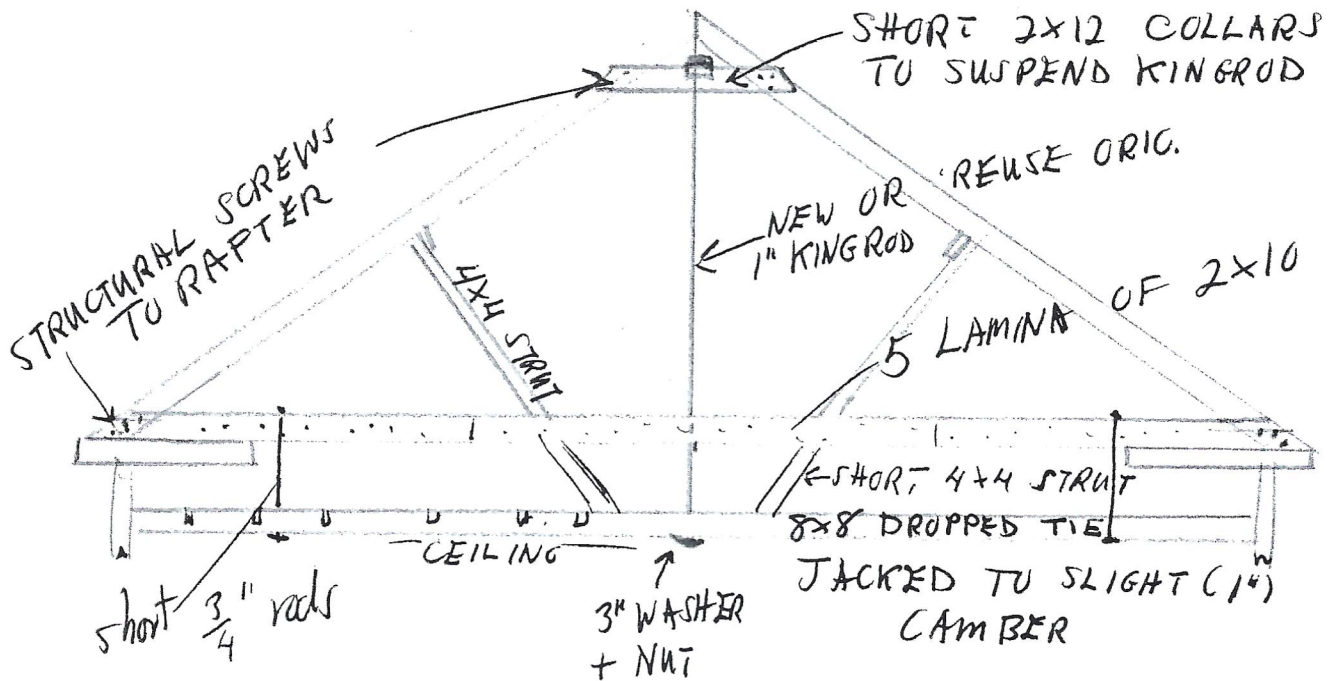 SHORT 2X12 COLLARS
TO SUSPEND KINGROD
STRUCTURAL SCREWS
TO RAFTER
NEW OR REUSE ORIG.
1" KINGROD
4X4 STRUT
5 LAMINA OF 2X10
←SHORT 4X4 STRUT
8X8 DROPPED TIE
JACKED TO SLIGHT (1")
CAMBER
CEILING
short 3/4" rods
3" WASHER
+ NUT